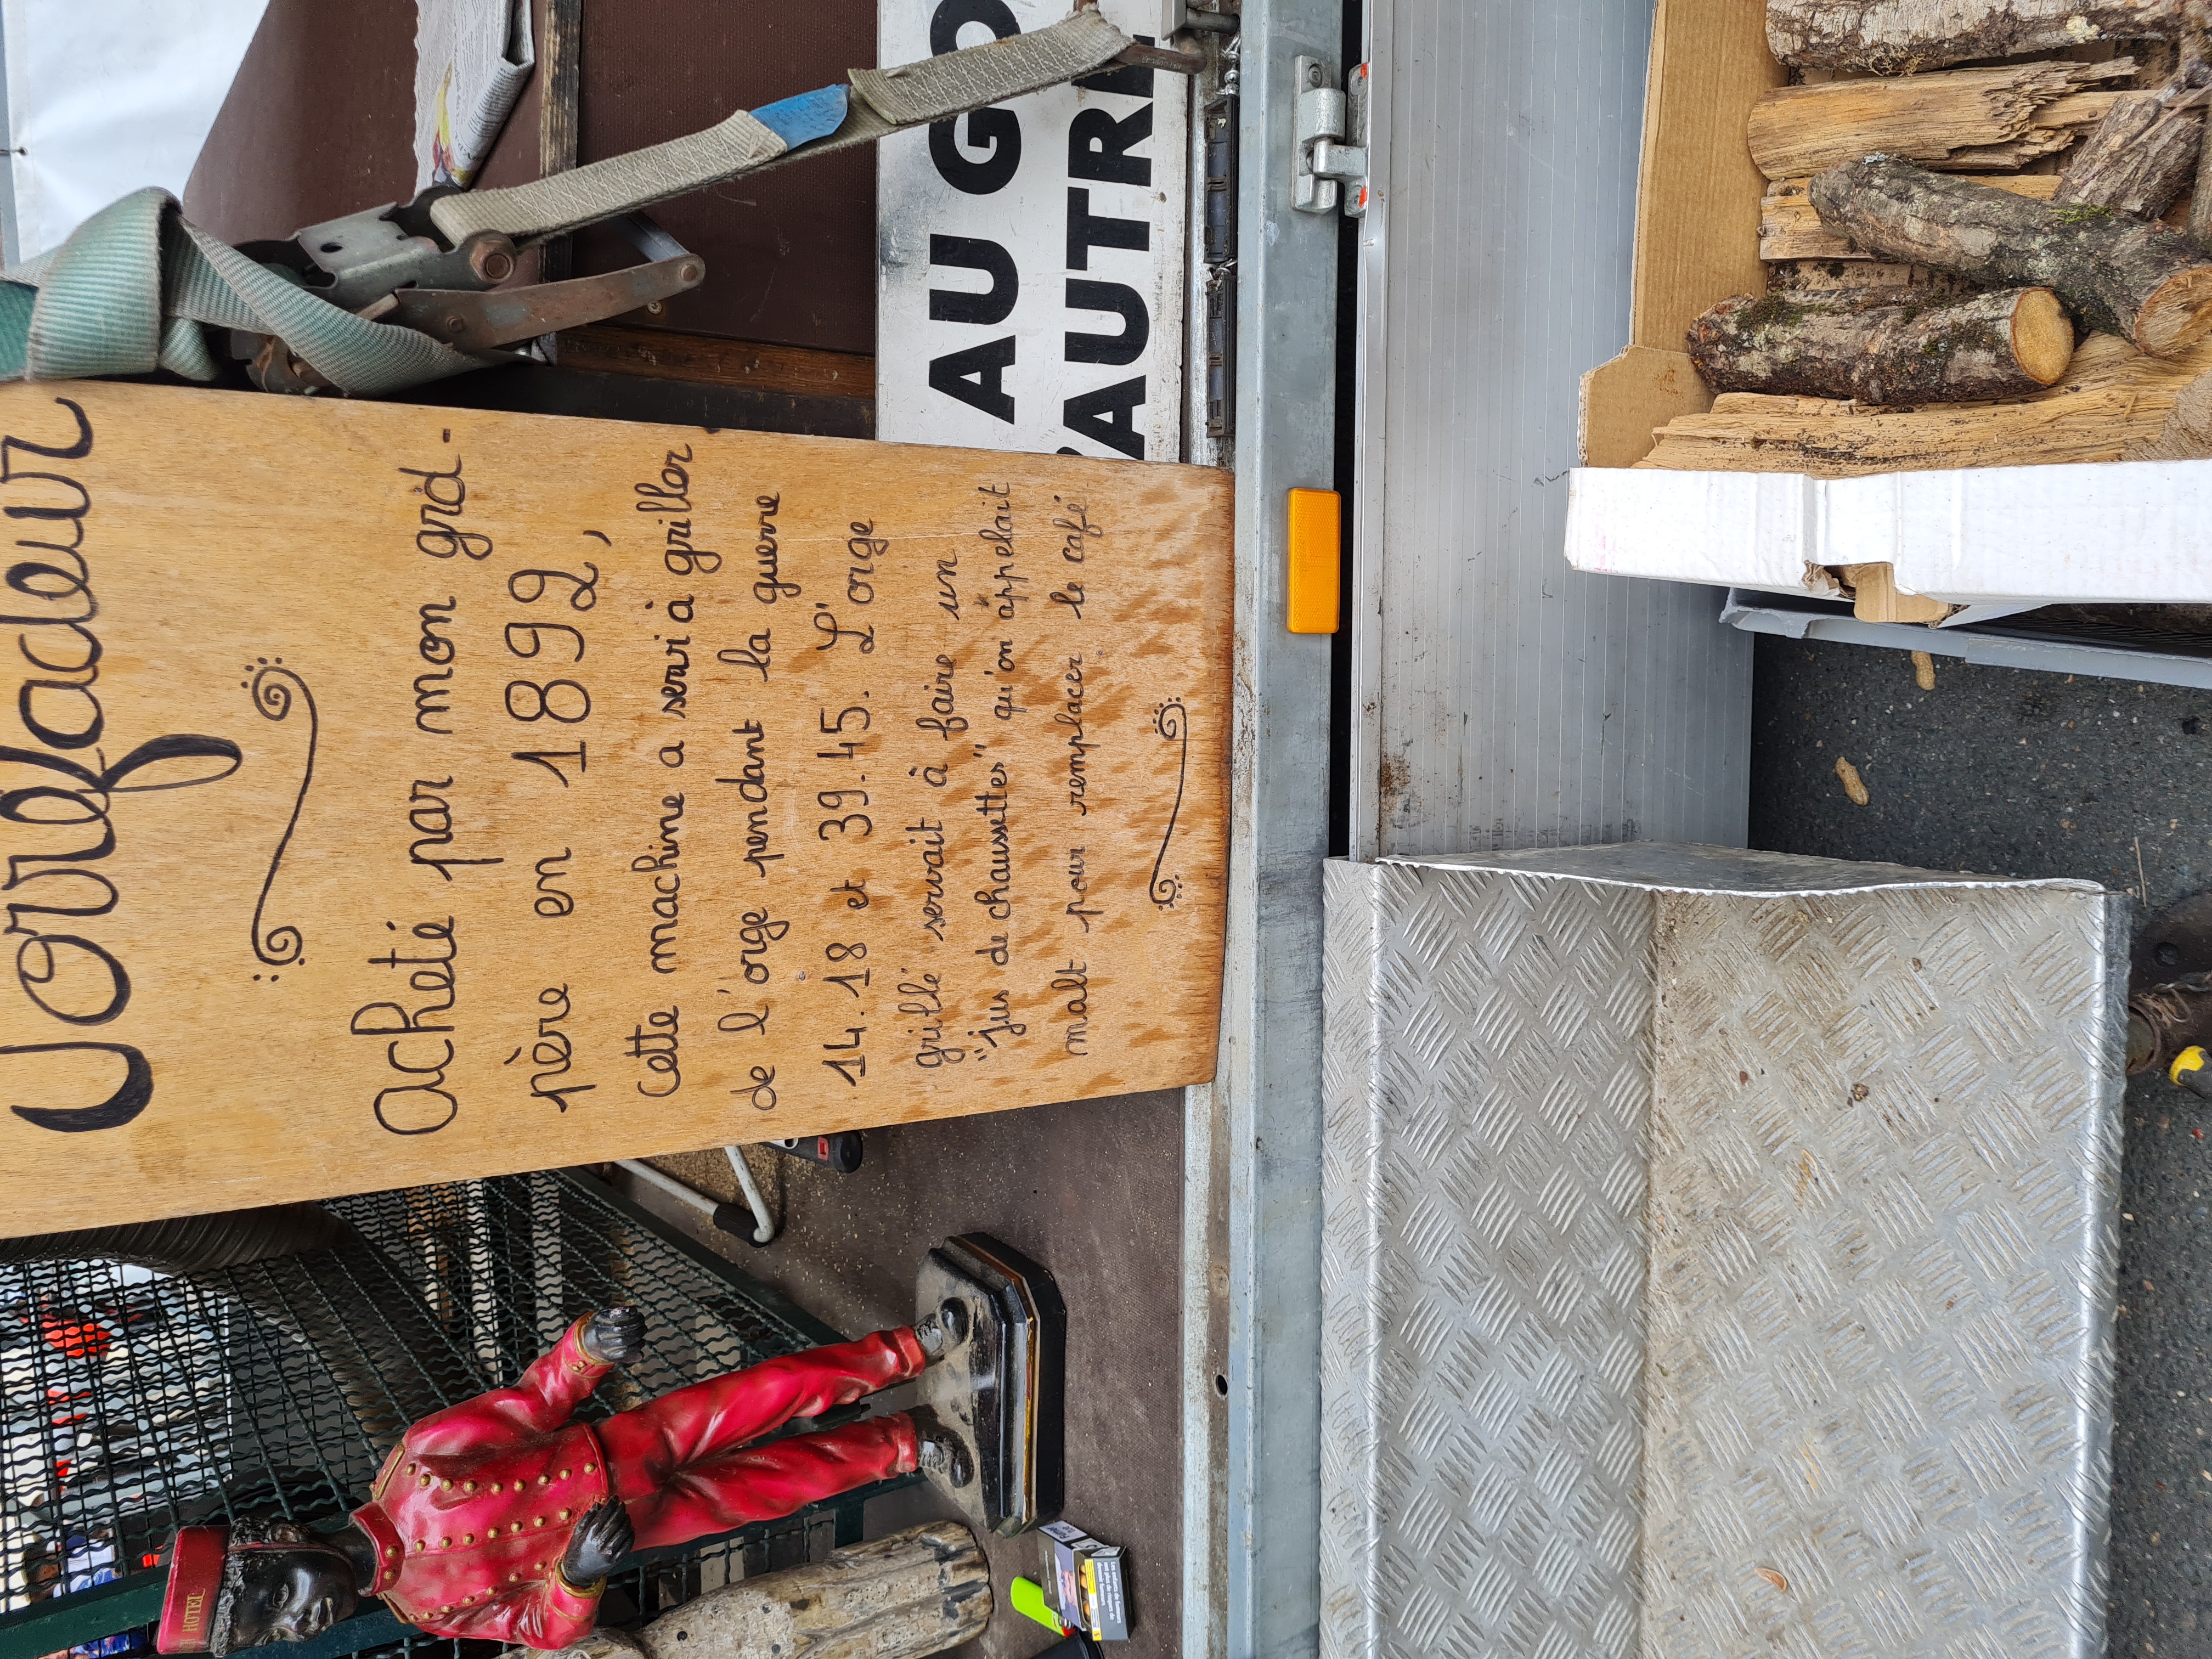 Torréfadeur
Acheté par mon grd-
père en 1892,
Cette machine a servi à griller
de l'orge pendant la guerre
14.18 et 39.45. L'orge
grillé servait à faire un
"jus de chaussettes" qu'on appelait
malt pour remplacer le café
AU GO
AUTRE
HOTEL